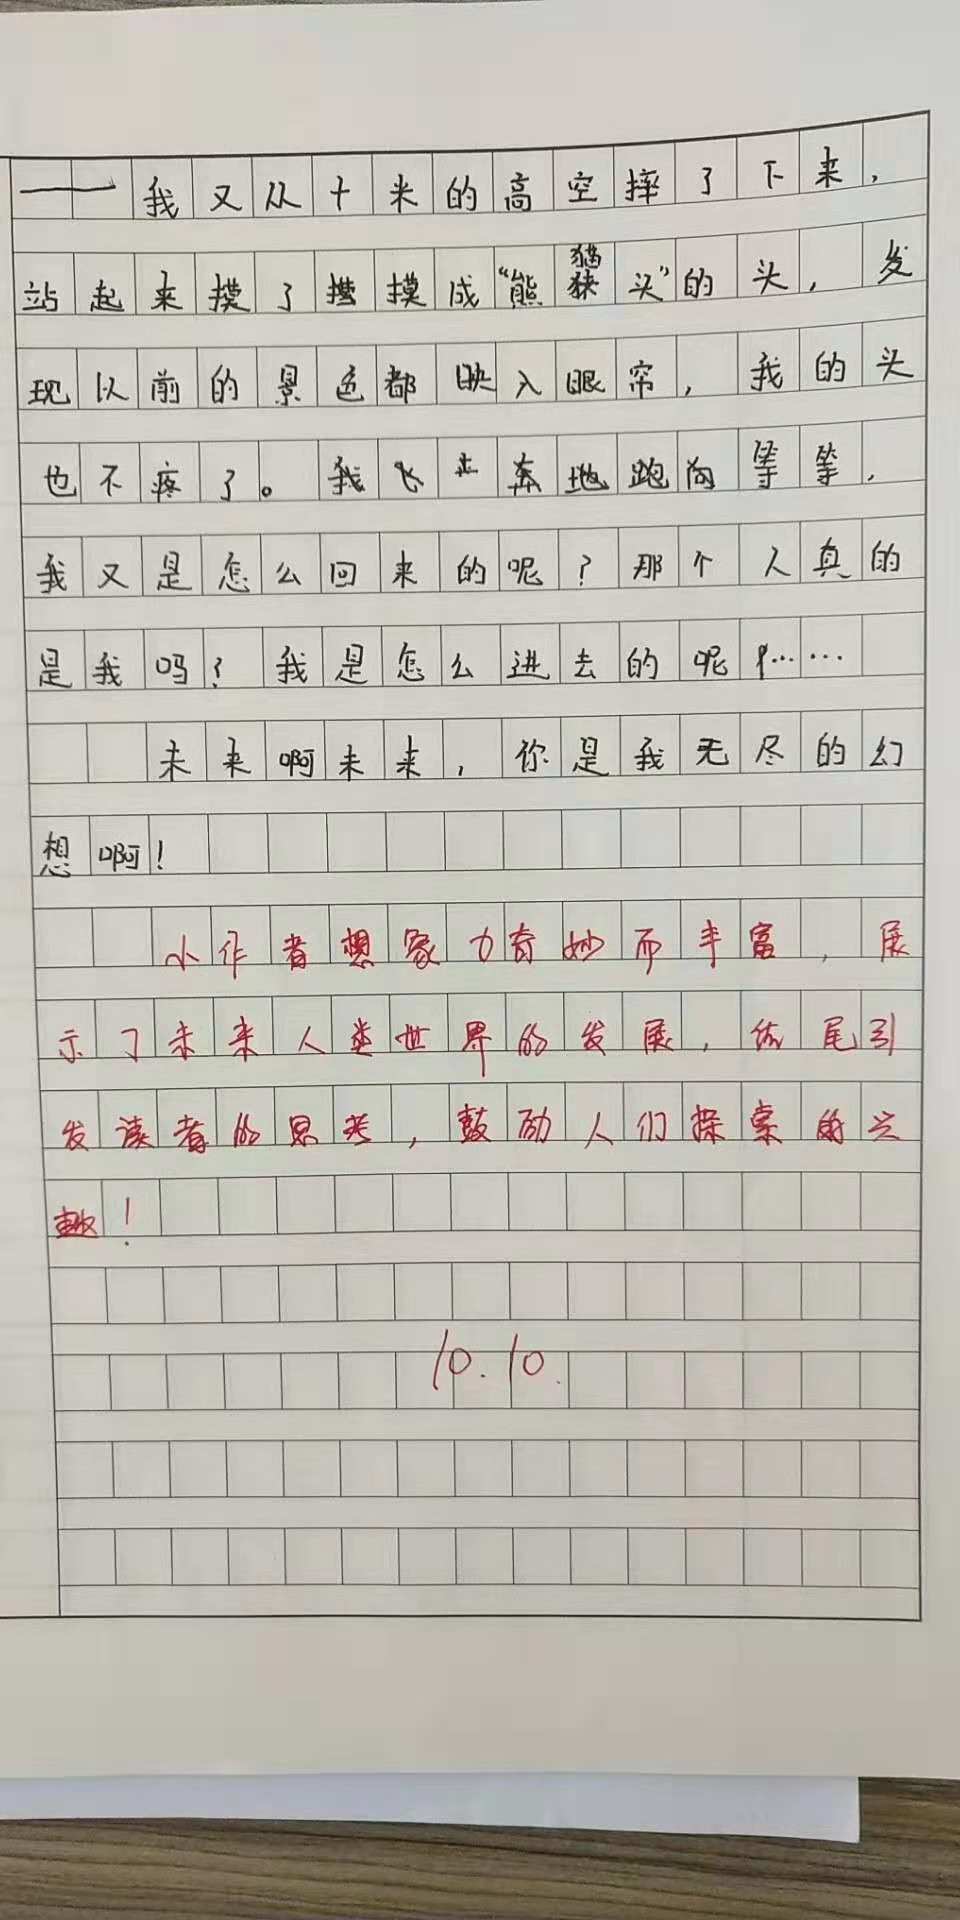 ——我又从十米的高空摔了下来，
站起来摸了摸成“熊猫头”的头，发
现以前的景色都映入眼帘，我的头
也不疼了。我飞 奔地跑向等等，
我又是怎么回来的呢？那个人真的
是我吗？我是怎么进去的呢？……
未来啊未来，你是我无尽的幻
想啊！
小作者想象力奇妙而丰富，展
示了未来人类世界的发展，结尾引
发读者的思考，鼓励人们探索的兴
趣！
10.10.